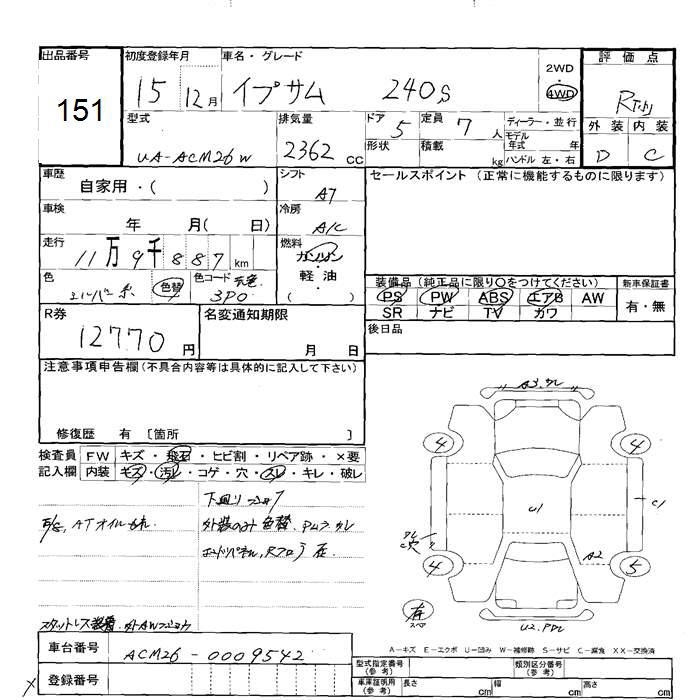 出品番号
151
初度登録年月
15 12月
車名・グレード
イプサム 240S
2WD
・
4WD
評価点
型式
UA-ACM26W
排気量
2362 CC
ドア 5
形状
定員 7 人
積載 kg
ディーラー・並行
モデル
年式 年
ハンドル 左・右
外装 内装
D C
車歴
自家用・( )
シフト
AT
セールスポイント (正常に機能するものに限ります)
車検
年 月( 日)
冷房
A/C
走行
11万9千887km
燃料
ガソリン
・
軽油
・
( )
色
シルバー系
色替
色コード 元色
3P0
装備品 (純正品に限り○をつけてください)
PS PW ABS エアB AW
SR ナビ TV カワ
新車保証書
有・無
R券
12770円
名変通知期限
月 日
後日品
注意事項申告欄(不具合内容等は具体的に記入して下さい)
修復歴 有 〔箇所 〕
検査員
記入欄
FW キズ・飛石・ヒビ割・リペア跡・×要
内装 キズ・汚れ・コゲ・穴・スレ・キレ・破レ
E/G, ATオイルもれ
外装のみ色替
A3
4 4
U1
C1
A2
4 5
有
スペア
スタットレス装着
車台番号
ACM26-0009542
登録番号
A-キズ E-エクボ U-凹み W-補修跡 S-サビ C-腐食 XX-交換済
型式指定番号
(参考)
類別区分番号
(参考)
車庫証明用
(参考)
長さ cm 幅 cm 高さ cm